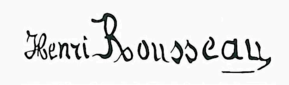 Henri Rousseau